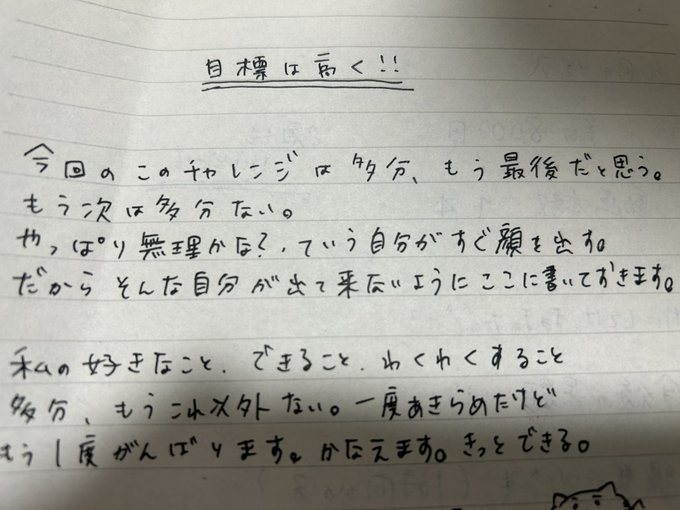 目標は高く!!
今回のこのチャレンジは多分、もう最後だと思う。
もう次は多分ない。
やっぱり無理かな?、ていう自分がすぐ顔を出す。
だからそんな自分が出て来ないようにここに書いておきます。
私の好きなこと、できること、わくわくすること
多分、もうこれ以外ない。一度あきらめたけど
もう1度がんばります。かなえます。きっとできる。